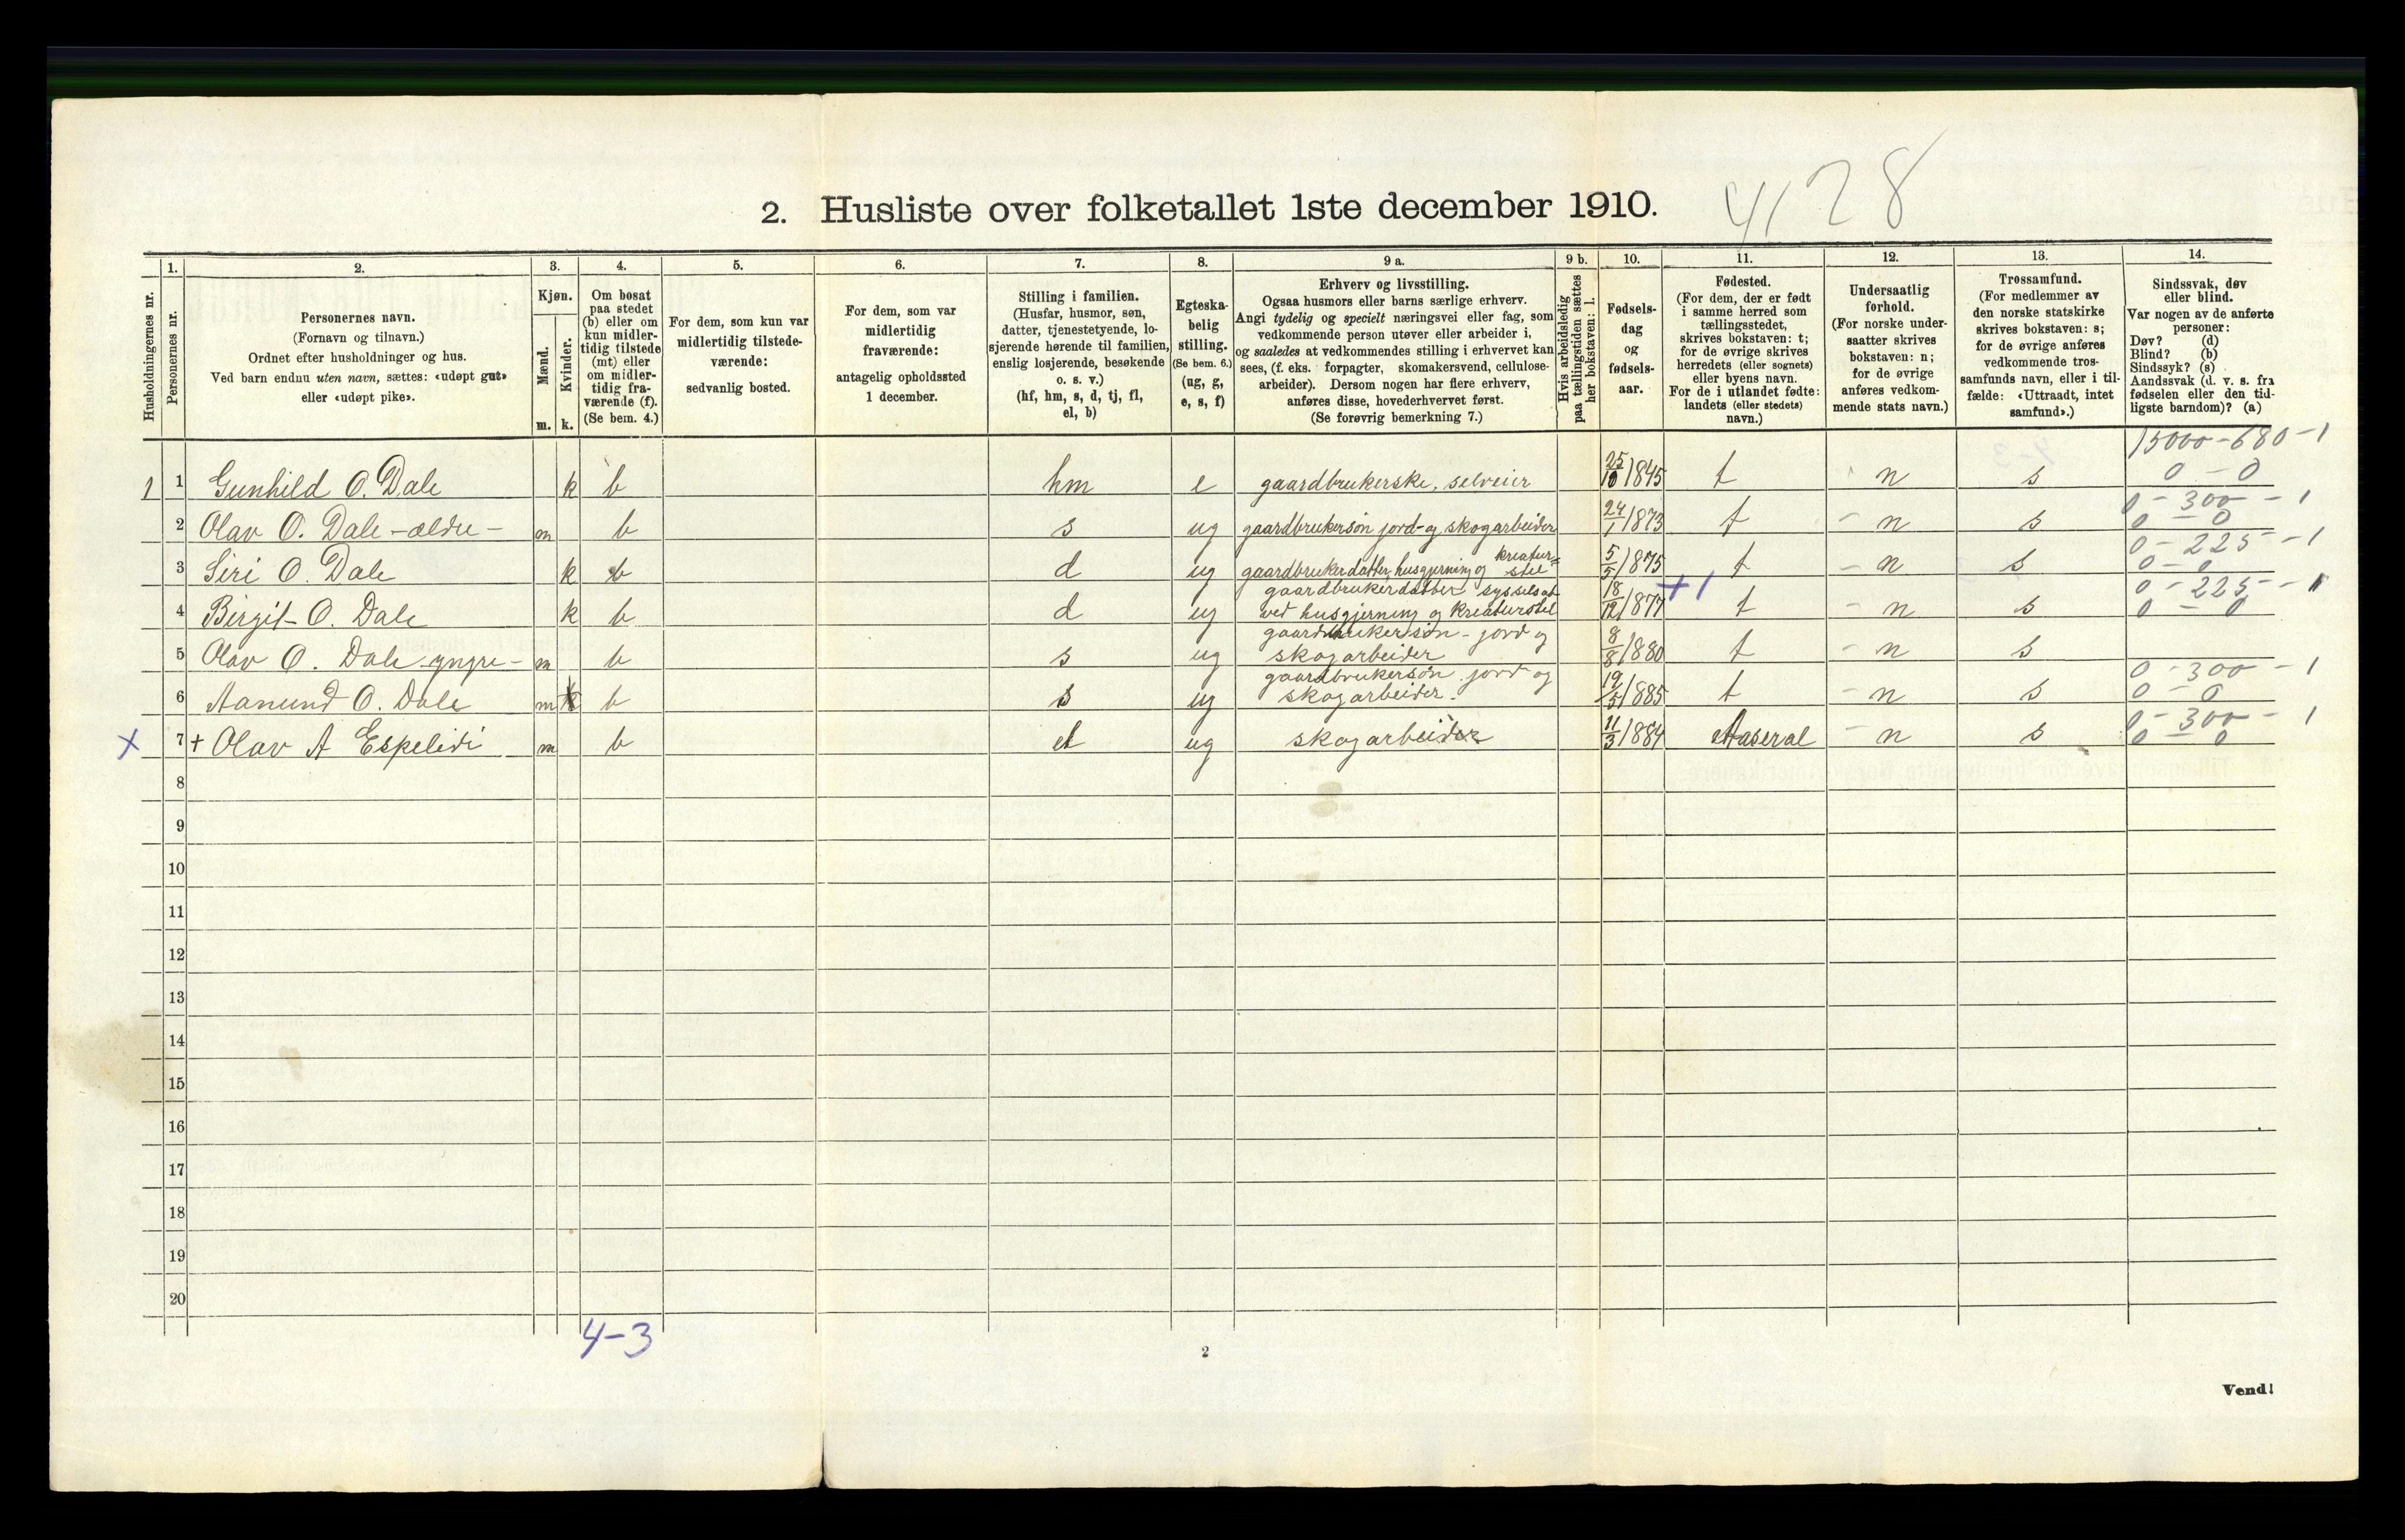 4128
2. Husliste over folketallet 1ste december 1910.
Husholdningernes nr.
1.
Personernes nr.
2.
Personernes navn.
(Fornavn og tilnavn.)
Ordnet efter husholdninger og hus.
Ved barn endnu uten navn, sættes: «udøpt gut»
eller «udøpt pike».
3.
Kjøn.
Mænd.
Kvinder.
m. k.
4.
Om bosat
paa stedet
(b) eller om
kun midler-
tidig tilstede
(mt) eller
om midler-
tidig fra-
værende (f).
(Se bem. 4.)
5.
For dem, som kun var
midlertidig tilstede-
værende:
sedvanlig bosted.
6.
For dem, som var
midlertidig
fraværende:
antagelig opholdssted
1 december.
7.
Stilling i familien.
(Husfar, husmor, søn,
datter, tjenestetyende, lo-
sjerende hørende til familien,
enslig losjerende, besøkende
o. s. v.)
(hf, hm, s, d, tj, fl,
el, b)
8.
Egteska-
belig
stilling.
(Se bem. 6.)
(ug, g,
e, s, f)
9 a.
Erhverv og livsstilling.
Ogsaa husmors eller barns særlige erhverv.
Angi tydelig og specielt næringsvei eller fag, som
vedkommende person utøver eller arbeider i,
og saaledes at vedkommendes stilling i erhvervet kan
sees, (f. eks. forpagter, skomakersvend, cellulose-
arbeider). Dersom nogen har flere erhverv,
anføres disse, hovederhvervet først.
(Se forøvrig bemerkning 7.)
9 b.
Hvis arbeidsledig
paa tællingstiden sættes
her bokstaven: l.
10.
Fødsels-
dag
og
fødsels-
aar.
11.
Fødested.
(For dem, der er født
i samme herred som
tællingsstedet,
skrives bokstaven: t;
for de øvrige skrives
herredets (eller sognets)
eller byens navn.
For de i utlandet fødte:
landets (eller stedets)
navn.)
12.
Undersaatlig
forhold.
(For norske under-
saatter skrives
bokstaven: n;
for de øvrige
anføres vedkom-
mende stats navn.)
13.
Trossamfund.
(For medlemmer av
den norske statskirke
skrives bokstaven: s;
for de øvrige anføres
vedkommende tros-
samfunds navn, eller i til-
fælde: «Uttraadt, intet
samfund».)
14.
Sindssvak, døv
eller blind.
Var nogen av de anførte
personer:
Døv? (d)
Blind? (b)
Sindssyk? (s)
Aandssvak (d. v. s. fra
fødselen eller den tid-
ligste barndom)? (a)
15000-680-1
1 1 Gunhild O. Dale k b hm e gaardbrukerske, selveier 25/10 1845 t n s 0-0
0-300-1
2 Olav O. Dale -ældre- m b s ug gaardbrukersøn jord- og skogarbeider 24/1 1873 t n s 0-0
kreatur= 0-225-1
3 Siri O. Dale k b d ug gaardbrukerdatter, husgjerning og stel 5/5 1875 t n s 0-0
gaardbrukerdatter sysselsat +1 0-225-1
4 Birgit O. Dale k b d ug ved husgjerning og kreaturstel 18/12 1877 t n s 0-0
gaardbrukersøn - jord og
5 Olav O. Dale -yngre- m b s ug skogarbeider 8/8 1880 t n s
gaardbrukersøn jord og 0-300-1
6 Aanund O. Dale m b s ug skogarbeider. 19/5 1885 t n s 0-0
0-300-1
x 7 + Olav A Espelidi m b el ug skogarbeider 11/3 1884 Aaseral n s 0-0
8
9
10
11
12
13
14
15
16
17
18
19
20
4-3
2
Vend!